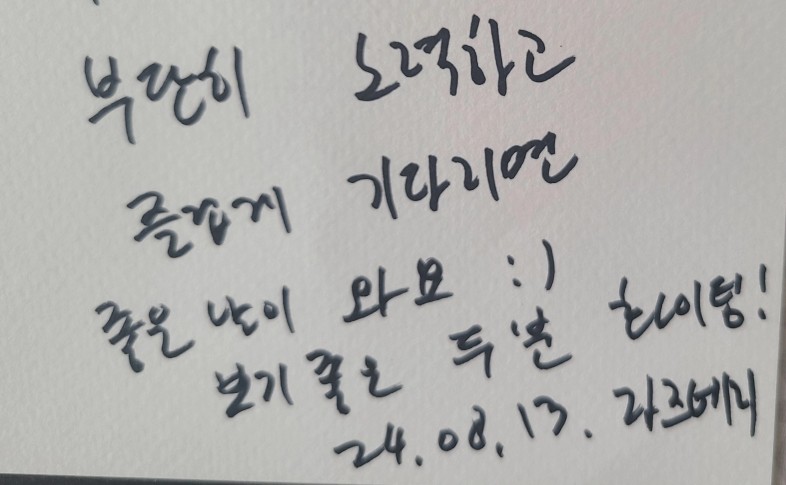 부단히 노력하고
즐겁게 기다리면
좋은 날이 와요 :)
보기 좋은 두분 화이팅!
24.08.13. 라즈베리